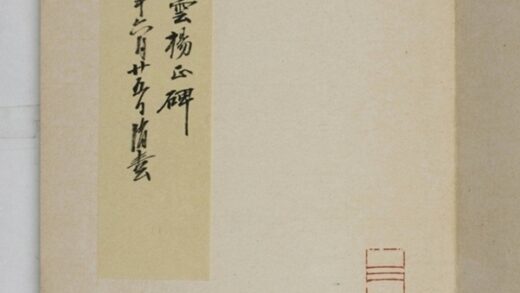 雲楊正碑
年六月廿五日